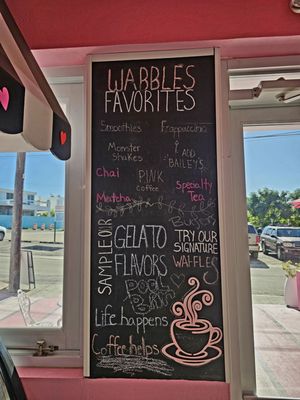 WARBLES
FAVORITES
Smoothies
Frappuccino
Monster
Shakes
ADD
BAILEY'S
Chai
PINK
coffee
Matcha
Specialty
Tea
SAMPLE OUR
GELATO
FLAVORS
TRY OUR
SIGNATURE
WAFFLES
Life happens
Coffee helps